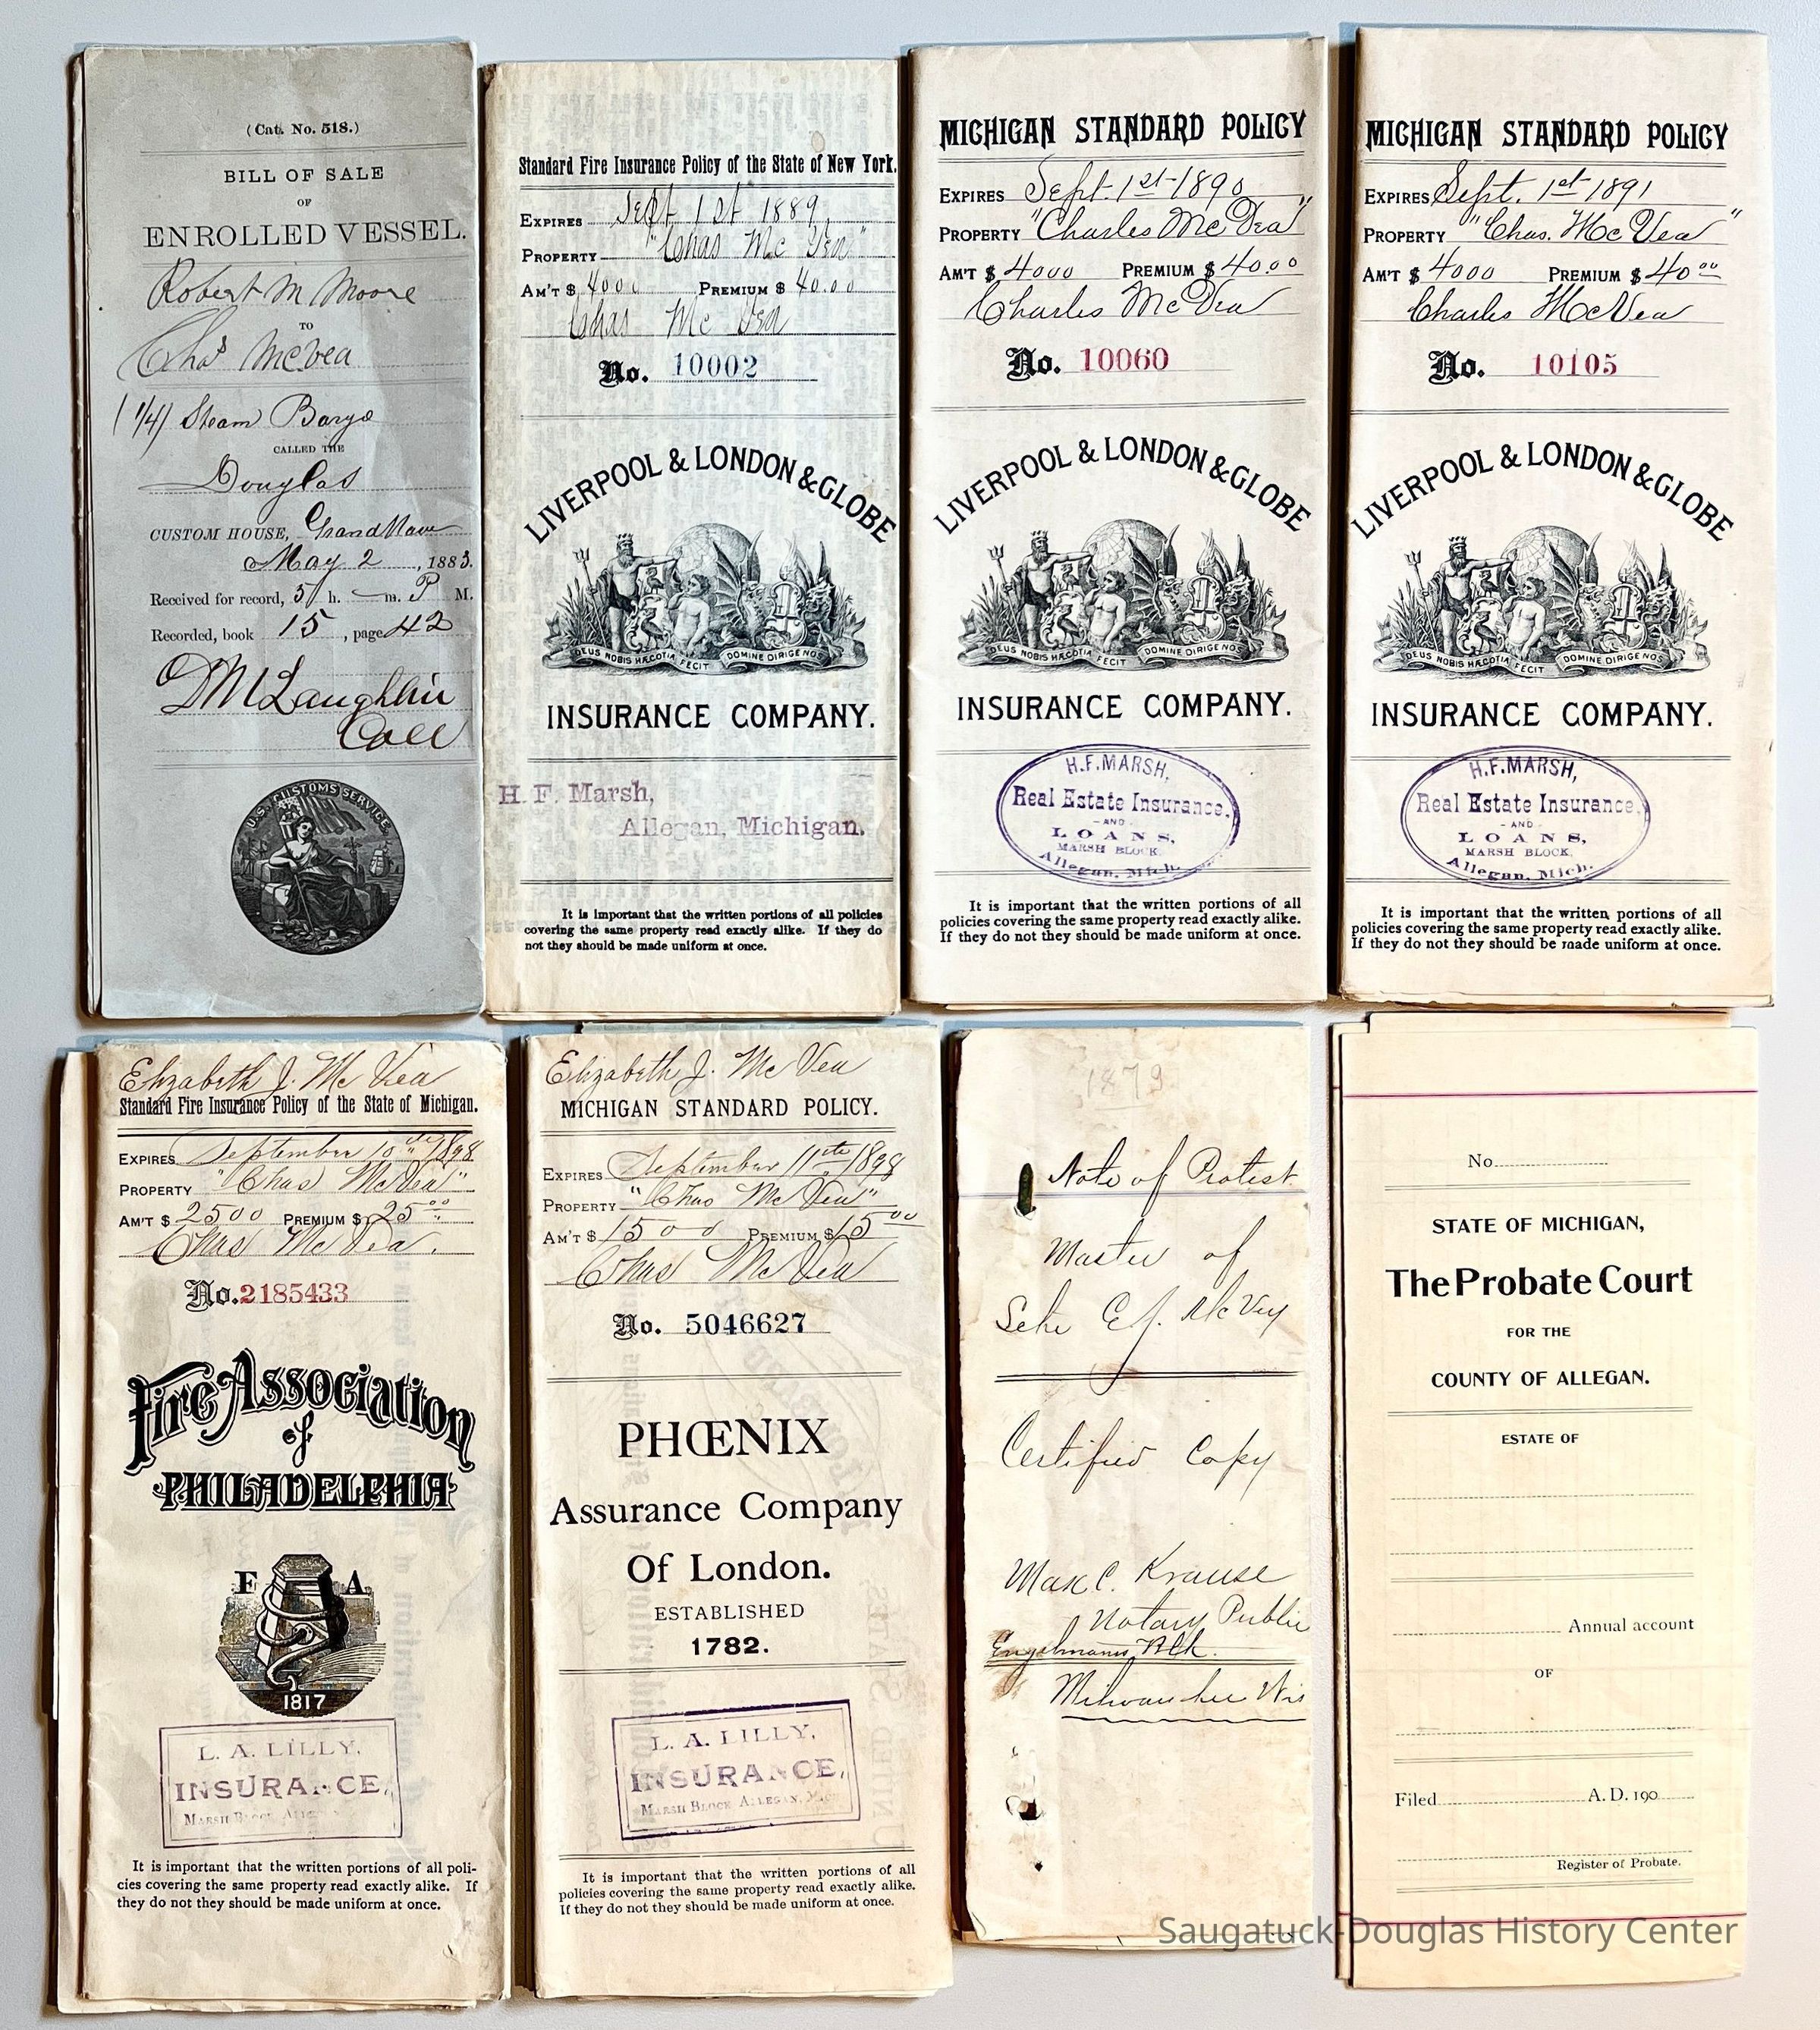 (Cat. No. 518.)
BILL OF SALE
OF
ENROLLED VESSEL.
Robert M Moore
TO
Chas McVea
(1/4) Steam Barge
CALLED THE
Douglas
CUSTOM HOUSE, Grand Haven
May 2, 1883.
Received for record, 5 h. — m. P M.
Recorded, book 15, page 42
D McLaughlin
Coll
U.S. CUSTOMS SERVICE.
Standard Fire Insurance Policy of the State of New York.
EXPIRES Sept 1st 1889,
PROPERTY "Chas Mc Vea"
AM'T $ 4000 PREMIUM $ 40.00
Chas Mc Vea
No. 10002
LIVERPOOL & LONDON & GLOBE
DEUS NOBIS HÆC OTIA FECIT DOMINE DIRIGE NOS
INSURANCE COMPANY.
H. F. Marsh,
Allegan, Michigan.
It is important that the written portions of all policies
covering the same property read exactly alike. If they do
not they should be made uniform at once.
MICHIGAN STANDARD POLICY
EXPIRES Sept. 1st 1890
PROPERTY "Charles McVea"
AM'T $ 4000 PREMIUM $ 40.00
Charles McVea
No. 10060
LIVERPOOL & LONDON & GLOBE
DEUS NOBIS HÆC OTIA FECIT DOMINE DIRIGE NOS
INSURANCE COMPANY.
H.F. MARSH,
Real Estate Insurance.
- AND -
LOANS,
MARSH BLOCK,
Allegan, Mich.
It is important that the written portions of all
policies covering the same property read exactly alike.
If they do not they should be made uniform at once.
MICHIGAN STANDARD POLICY
EXPIRES Sept. 1st 1891
PROPERTY "Chas. McVea"
AM'T $ 4000 PREMIUM $ 40 00
Charles McVea
No. 10105
LIVERPOOL & LONDON & GLOBE
DEUS NOBIS HÆC OTIA FECIT DOMINE DIRIGE NOS
INSURANCE COMPANY.
H.F. MARSH,
Real Estate Insurance.
- AND -
LOANS,
MARSH BLOCK,
Allegan, Mich.
It is important that the written portions of all
policies covering the same property read exactly alike.
If they do not they should be made uniform at once.
Elizabeth J. Mc Vea
Standard Fire Insurance Policy of the State of Michigan.
EXPIRES September 10th 1898
PROPERTY "Chas McVea"
AM'T $ 2500 PREMIUM $ 25 00
Chas McVea.
No. 2185433
Fire Association
of
PHILADELPHIA
F A
1817
L. A. LILLY,
INSURANCE,
MARSH BLOCK
It is important that the written portions of all poli-
cies covering the same property read exactly alike. If
they do not they should be made uniform at once.
Elizabeth J. Mc Vea
MICHIGAN STANDARD POLICY.
EXPIRES September 11th 1898
PROPERTY "Chas McVea"
AM'T $ 1500 PREMIUM $ 15 00
Chas McVea
No. 5046627
PHŒNIX
Assurance Company
Of London.
ESTABLISHED
1782.
L. A. LILLY,
INSURANCE,
MARSH BLOCK ALLEGAN, MICH.
It is important that the written portions of all
policies covering the same property read exactly alike.
If they do not they should be made uniform at once.
1879
Note of Protest
Master of
Schr E. J. McVey
Certified Copy
Max C. Krause
Notary Public
Engelmanns Blk.
Milwaukee Wis
No.
STATE OF MICHIGAN,
The Probate Court
FOR THE
COUNTY OF ALLEGAN.
ESTATE OF
Annual account
OF
Filed A. D. 190
Register of Probate.
Saugatuck-Douglas History Center